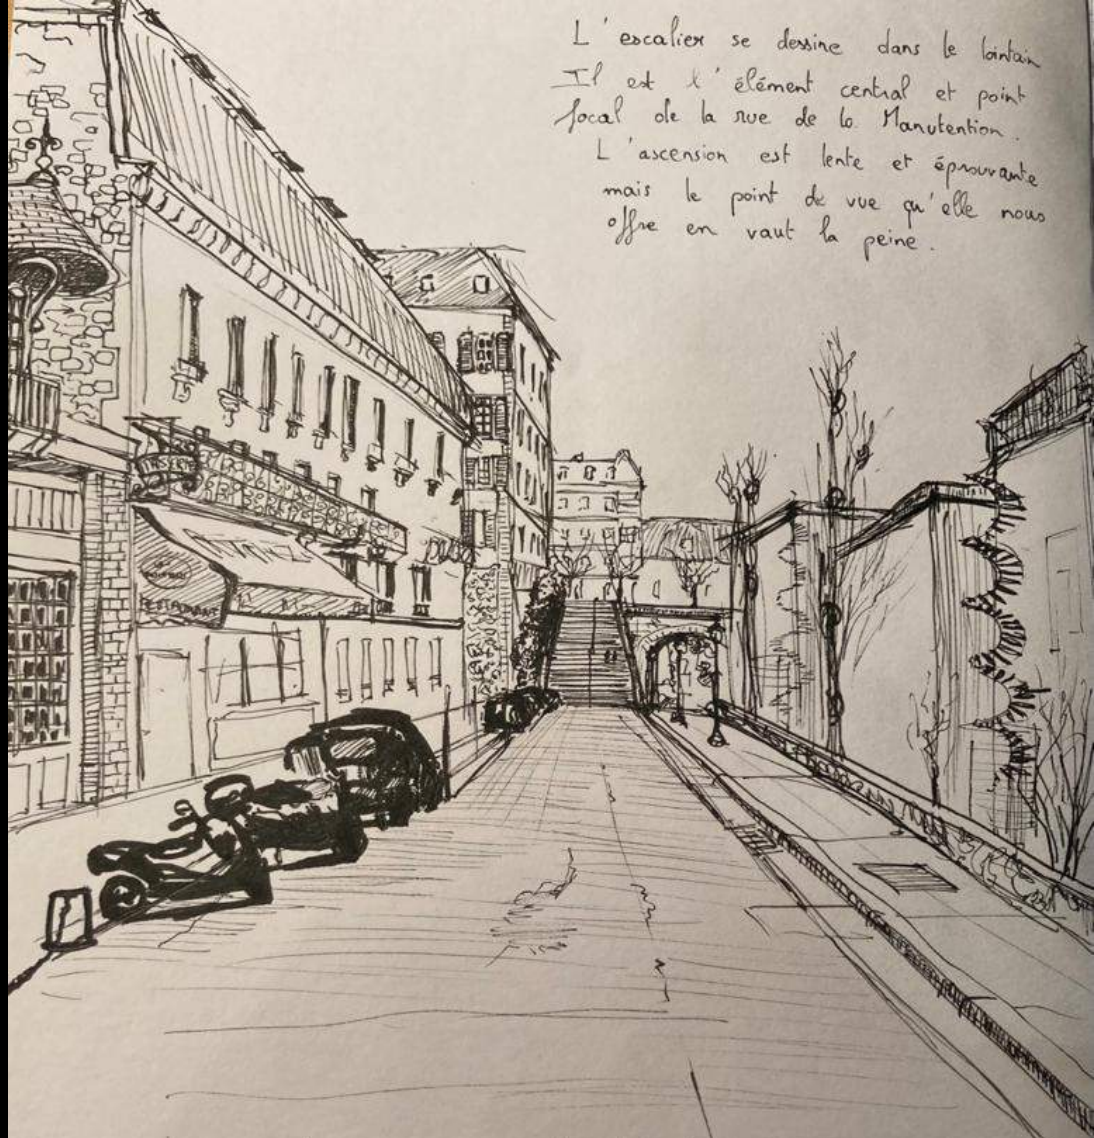 L'escalier se dessine dans le lointain
Il est l'élément central et point
focal de la rue de la Manutention.
L'ascension est lente et éprouvante
mais le point de vue qu'elle nous
offre en vaut la peine.
RESTAURANT